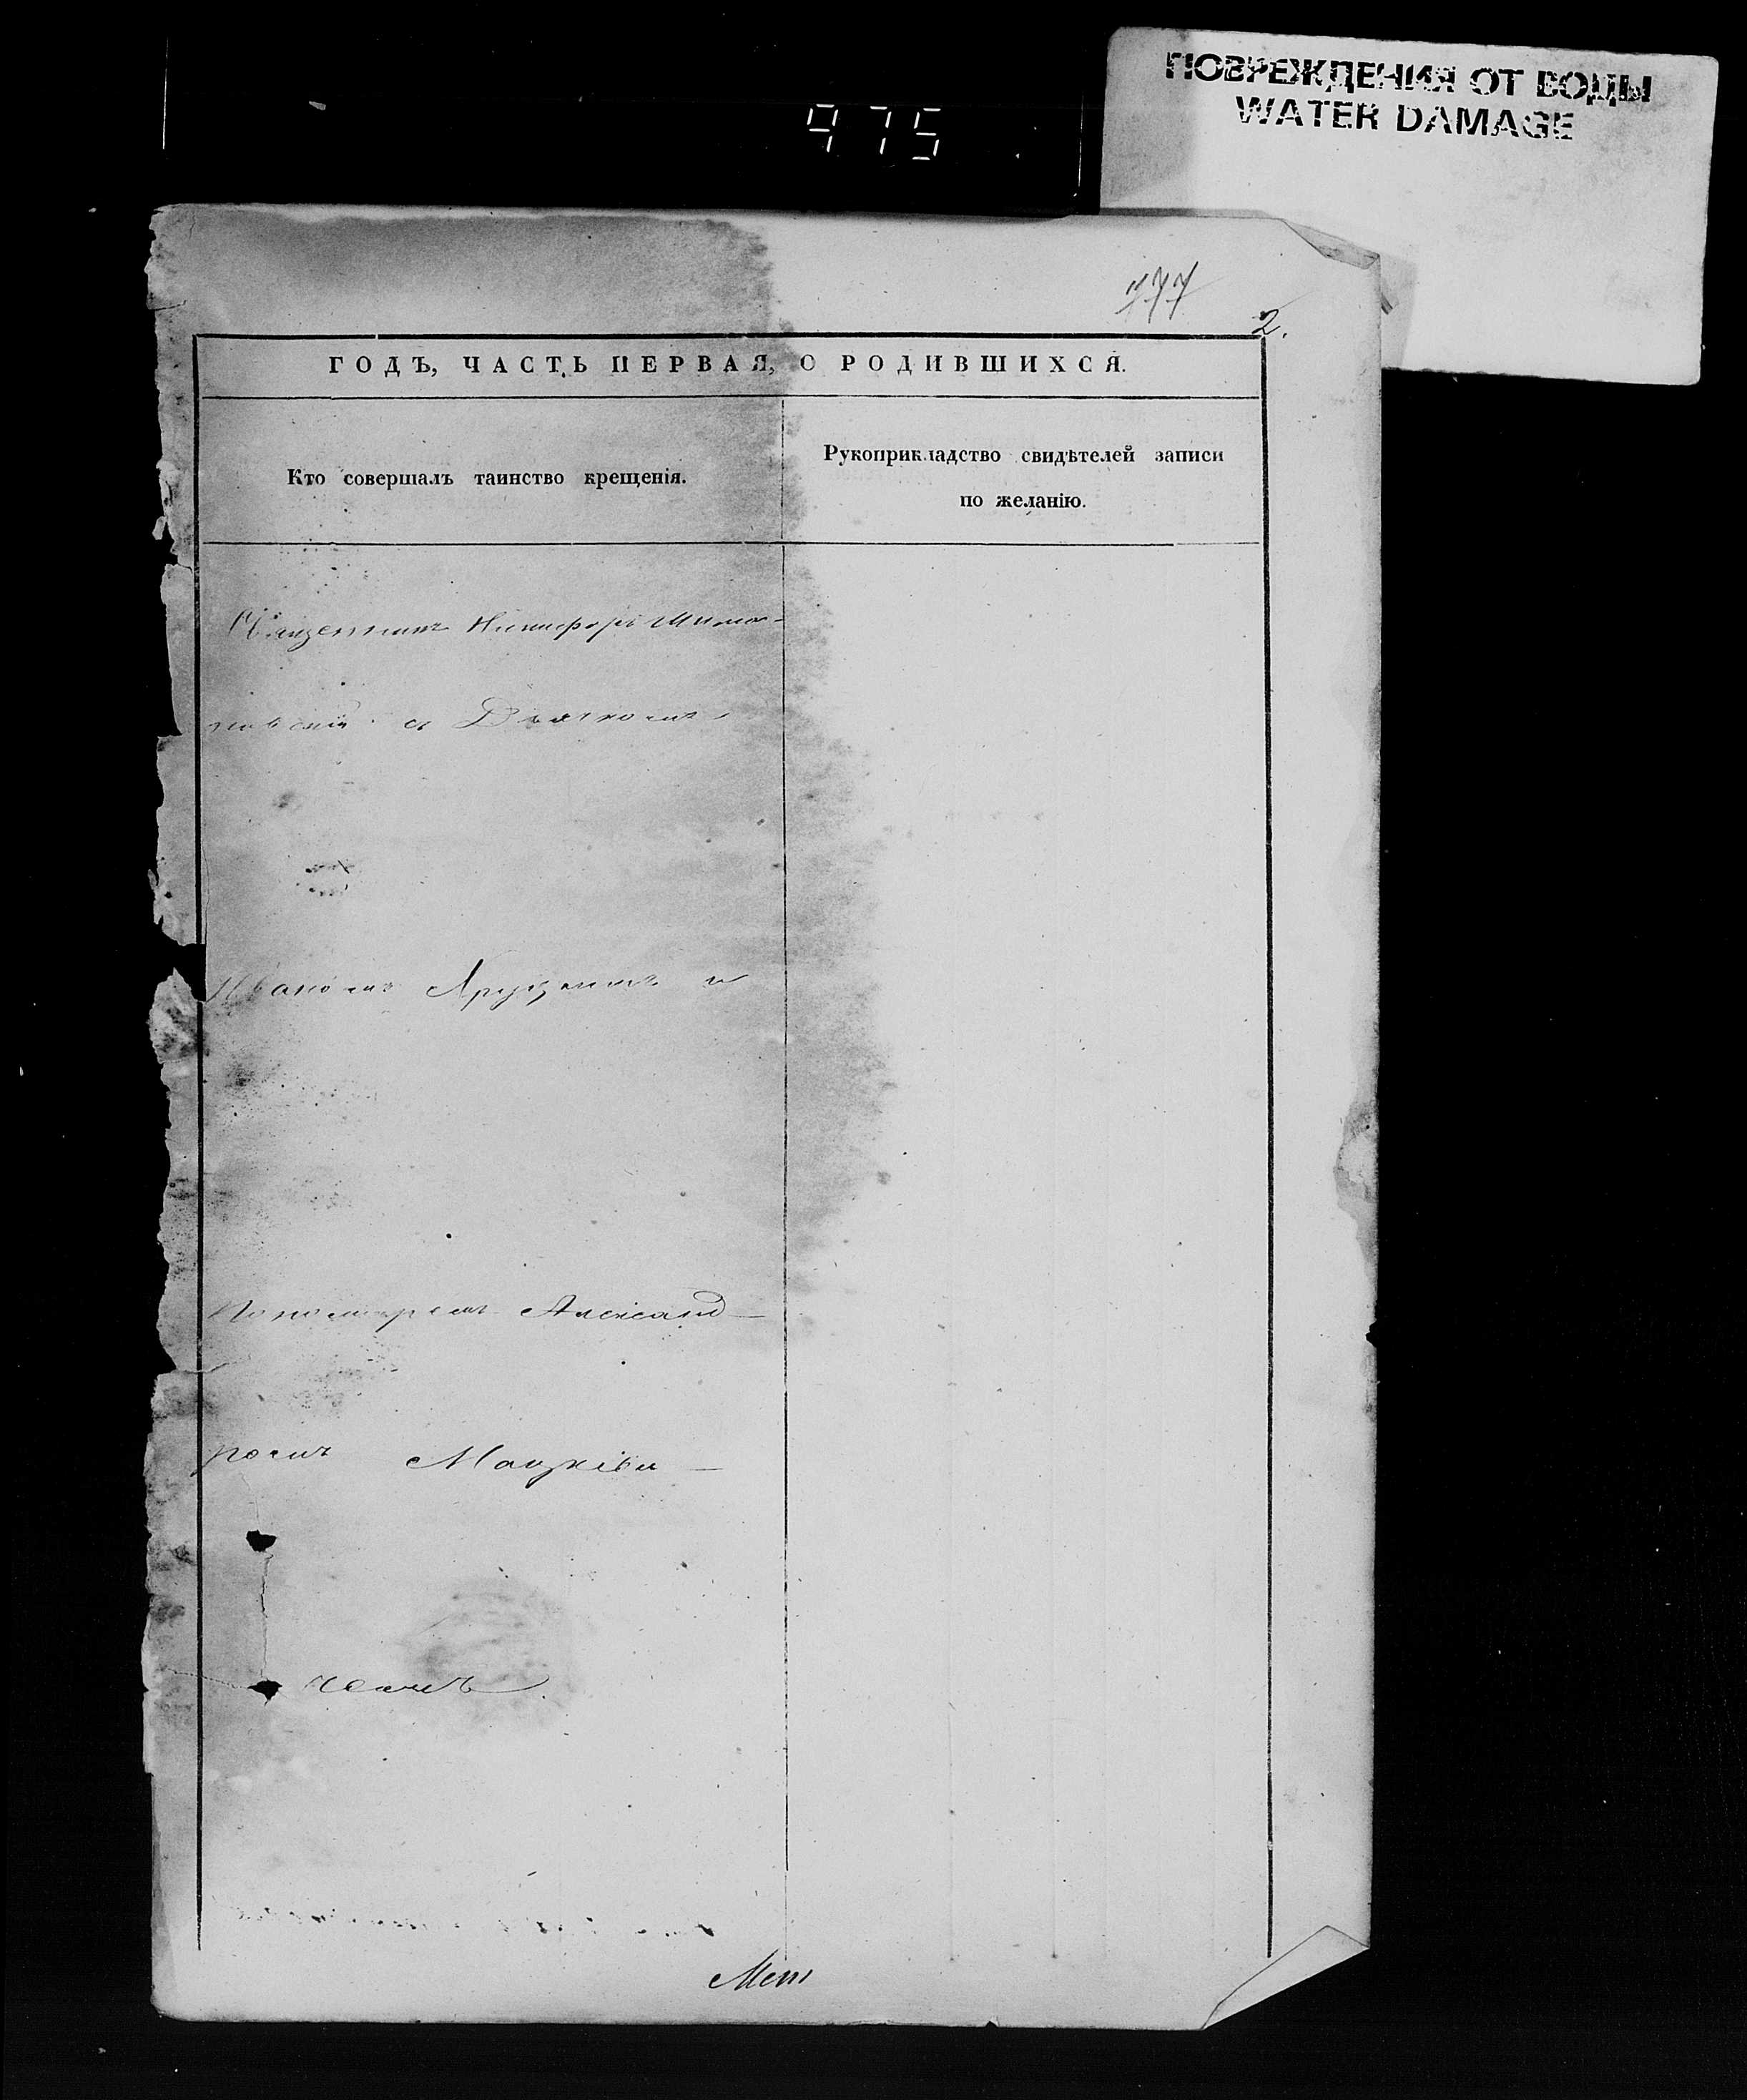 ПОВРЕЖДЕНИЯ ОТ ВОДЫ
WATER DAMAGE
975
177
2.
ГОДЪ, ЧАСТЬ ПЕРВАЯ, О РОДИВШИХСЯ.
Кто совершалъ таинство крещенія.
Рукоприкладство свидѣтелей записи
по желанію.
Священникъ Никифоръ
съ Дьячкомъ
Иваномъ и
Пономаремъ Александ-
ромъ Мацкеви-
чемъ
Мет